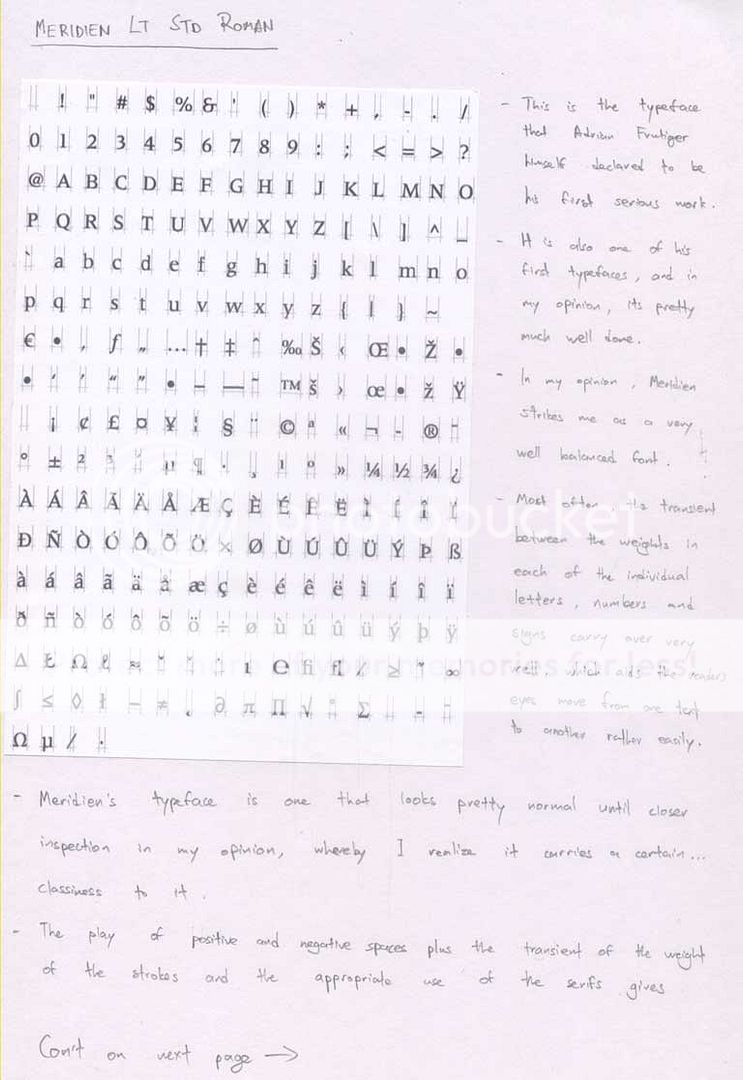 MERIDIEN LT STD ROMAN
! " # $ % & ' ( ) * + , - . /
0 1 2 3 4 5 6 7 8 9 : ; < = > ?
@ A B C D E F G H I J K L M N O
P Q R S T U V W X Y Z [ \ ] ^ _
` a b c d e f g h i j k l m n o
p q r s t u v w x y z { | } ~
€ • , ƒ „ … † ‡ ˆ ‰ Š ‹ Œ • Ž •
• ‘ ’ “ ” • – — ˜ ™ š › œ • ž Ÿ
¡ ¢ £ ¤ ¥ ¦ § ¨ © ª « ¬ - ® ¯
° ± ² ³ ´ µ ¶ · ¸ ¹ º » ¼ ½ ¾ ¿
À Á Â Ã Ä Å Æ Ç È É Ê Ë Ì Í Î Ï
Ð Ñ Ò Ó Ô Õ Ö × Ø Ù Ú Û Ü Ý Þ ß
à á â ã ä å æ ç è é ê ë ì í î ï
ð ñ ò ó ô õ ö ÷ ø ù ú û ü ý þ ÿ
∆ Ł Ω ℓ ≈ ˘ ˇ ˙ ı ℮ fi fl ⁄ ≥ ˝ ∞
∫ ≤ ◊ ł − ≠ ˛ ∂ π ∏ √ ˚ ∑ -
Ω µ / ·
- This is the typeface
that Adrian Frutiger
himself declared to be
his first serious work.
- It is also one of his
first typefaces, and in
my opinion, its pretty
much well done.
- In my opinion, Meridien
strikes me as a very
well balanced font.
- Most often, the transient
between the weights in
each of the individual
letters, numbers and
signs carry over very
well. which aids the readers
eyes move from one text
to another rather easily.
- Meridien's typeface is one that looks pretty normal until closer
inspection in my opinion, whereby I realize it carries a certain...
classiness to it.
- The play of positive and negative spaces plus the transient of the weight
of the strokes and the appropriate use of the serifs gives
Con't on next page →
photobucket
more of your memories for less!